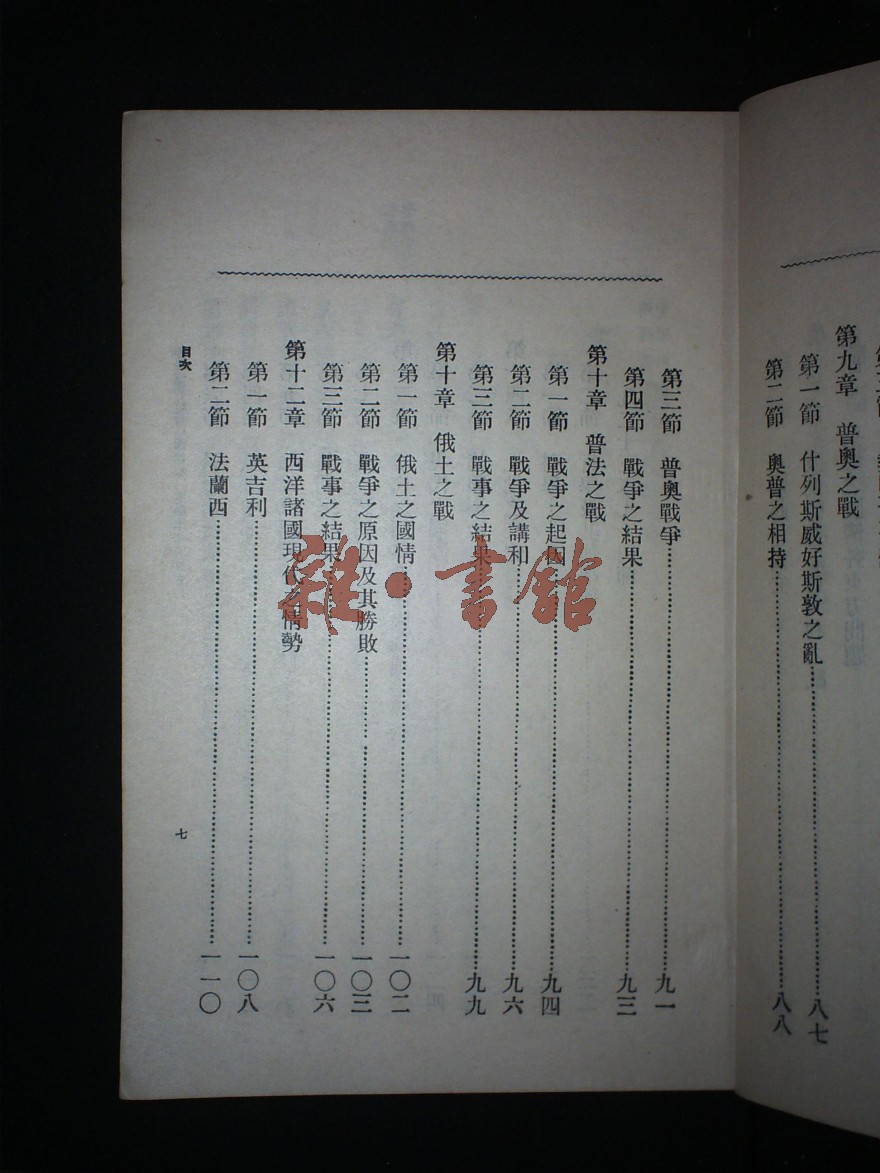 第九章 普奧之戰
第一節 什列斯威好斯敦之亂……八七
第二節 奧普之相持……八八
第三節 普奧戰爭……九一
第四節 戰爭之結果……九三
第十章 普法之戰
第一節 戰爭之起因……九四
第二節 戰爭及講和……九六
第三節 戰事之結果……九九
第十章 俄土之戰
第一節 俄土之國情……一〇二
第二節 戰爭之原因及其勝敗……一〇三
第三節 戰事之結果……一〇六
第十二章 西洋諸國現代之情勢
第一節 英吉利……一〇八
第二節 法蘭西……一一〇
目次
七
雜·書館